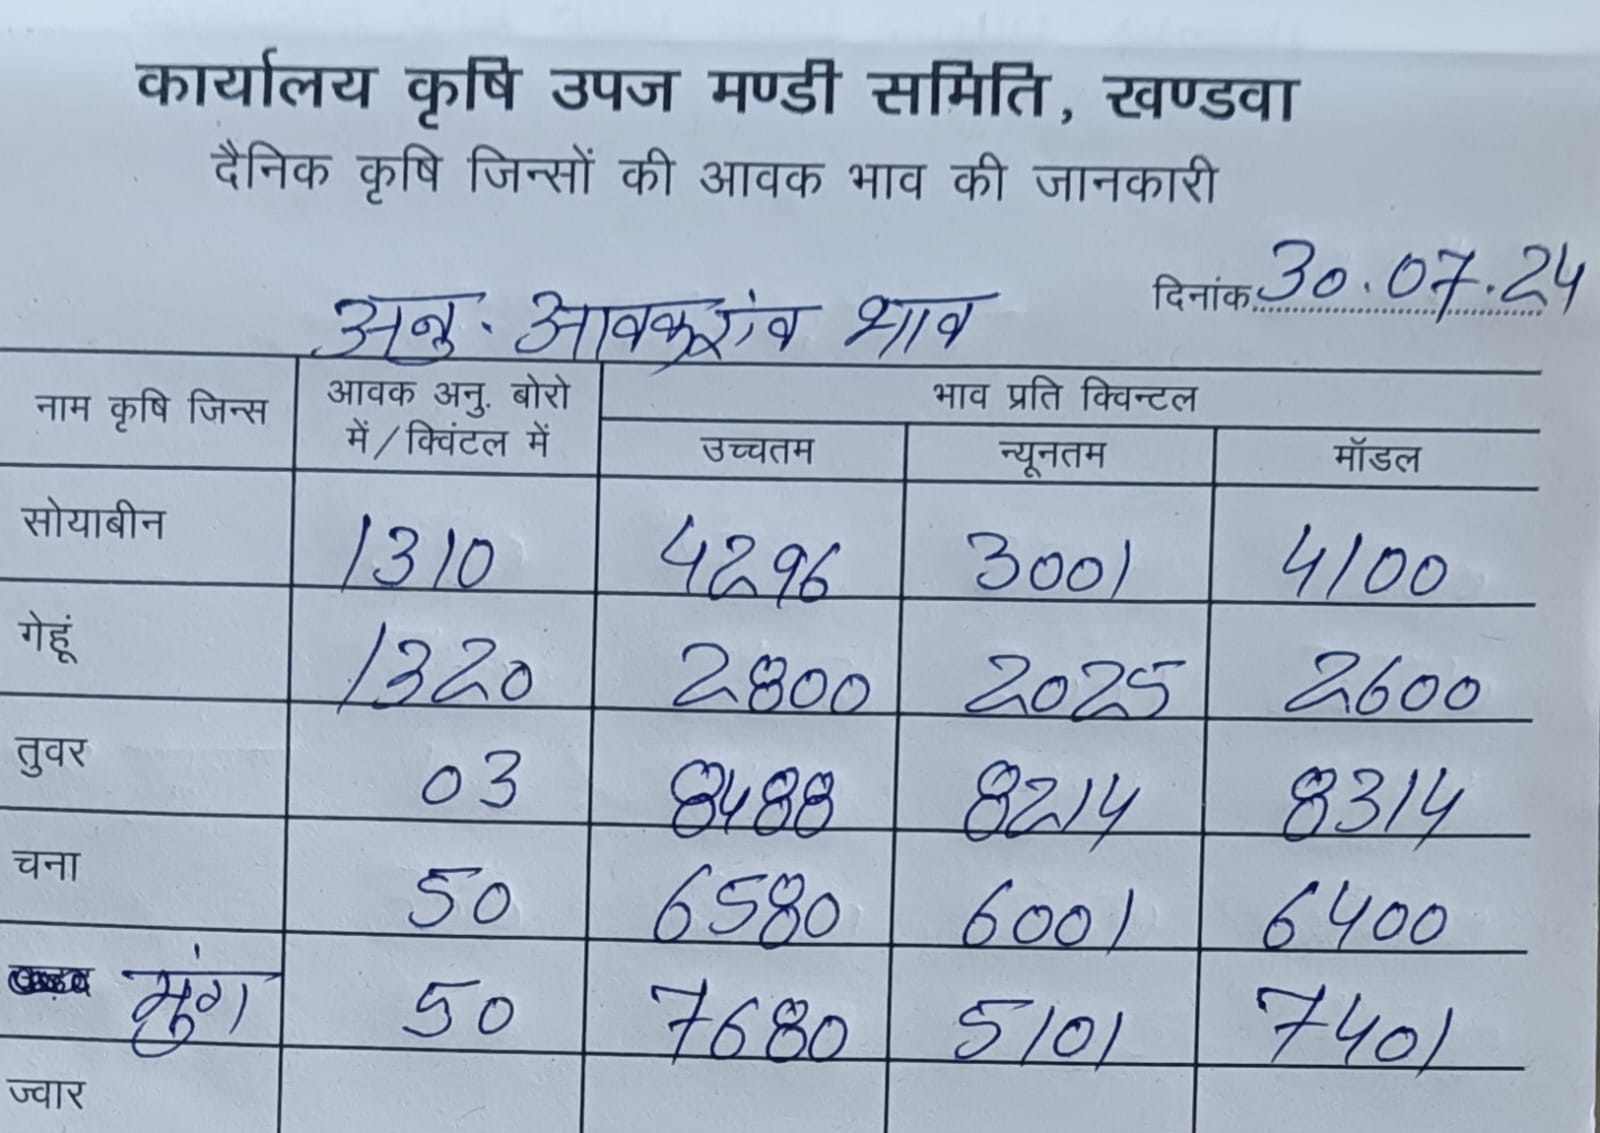 कार्यालय कृषि उपज मण्डी समिति, खण्डवा
दैनिक कृषि जिन्सों की आवक भाव की जानकारी
दिनांक 30.07.24
अनु. आवक एंव भाव
नाम कृषि जिन्स आवक अनु. बोरो में/क्विंटल में भाव प्रति क्विन्टल
उच्चतम न्यूनतम मॉडल
सोयाबीन 1310 4296 3001 4100
गेहूं 1320 2800 2025 2600
तुवर 03 8488 8214 8314
चना 50 6580 6001 6400
मुंग 50 7680 5101 7401
ज्वार